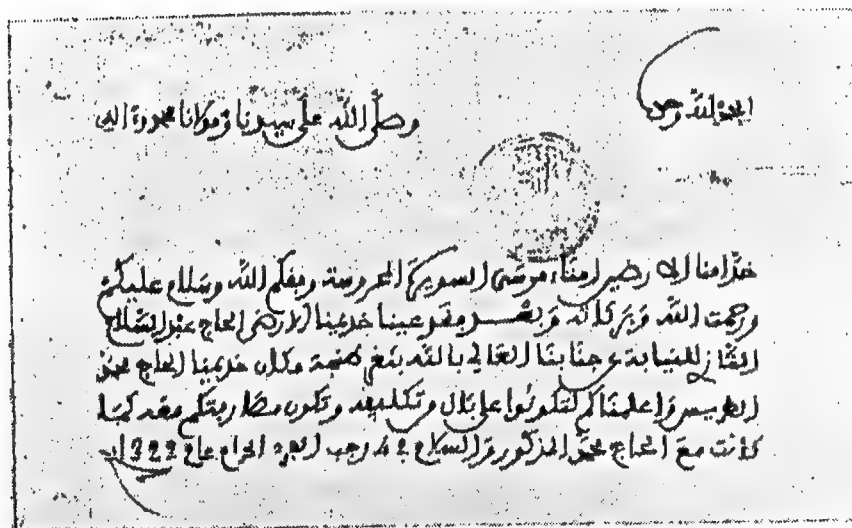 الحمد لله وحده
وصلى الله على سيدنا ومولانا محمد وءاله
خدامنا الارضين امناء مرسى السويرة المحروسة وفقكم الله وسلام عليكم
ورحمت الله وبركاته وبعد فقد عيننا خديمنا الارضى الحاج عبد السلام
التازي للنيابة عن جنابنا العالي بالله بثغر طنجة مكان خديمنا الحاج محمد
الطريس واعلمناكم لتكونوا على بال من تكليفه وتكون مخاربتكم معه كما
كانت مع الحاج محمد المذكور والسلام في 4 رجب الفرد الحرام عام 1322